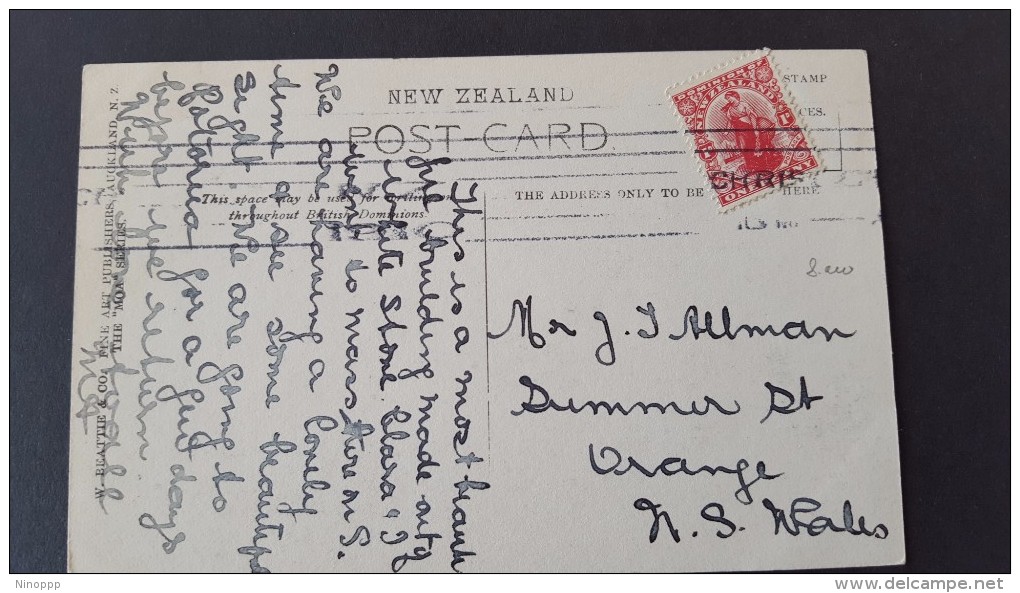 NEW ZEALAND
POST CARD.
STAMP
CES.
DOMINION OF
NEW ZEALAND
ONE PENNY
CHRIS
This space may be used for writing
throughout British Dominions
THE ADDRESS ONLY TO BE
HERE
W. BEATTIE & CO., FINE ART PUBLISHERS, AUCKLAND, N. Z.
THE "MOA" SERIES.
This is a most beauti
ful building made out of
white stone. Clara & I
went to mass there on S.
We are having a lovely
time & see some beautiful
sight. We are going to
Rotorua for a few days
before we return.
Mr J. T Allman
Summer St
Orange
N. S. Wales
Ninoppp
delcampe.net